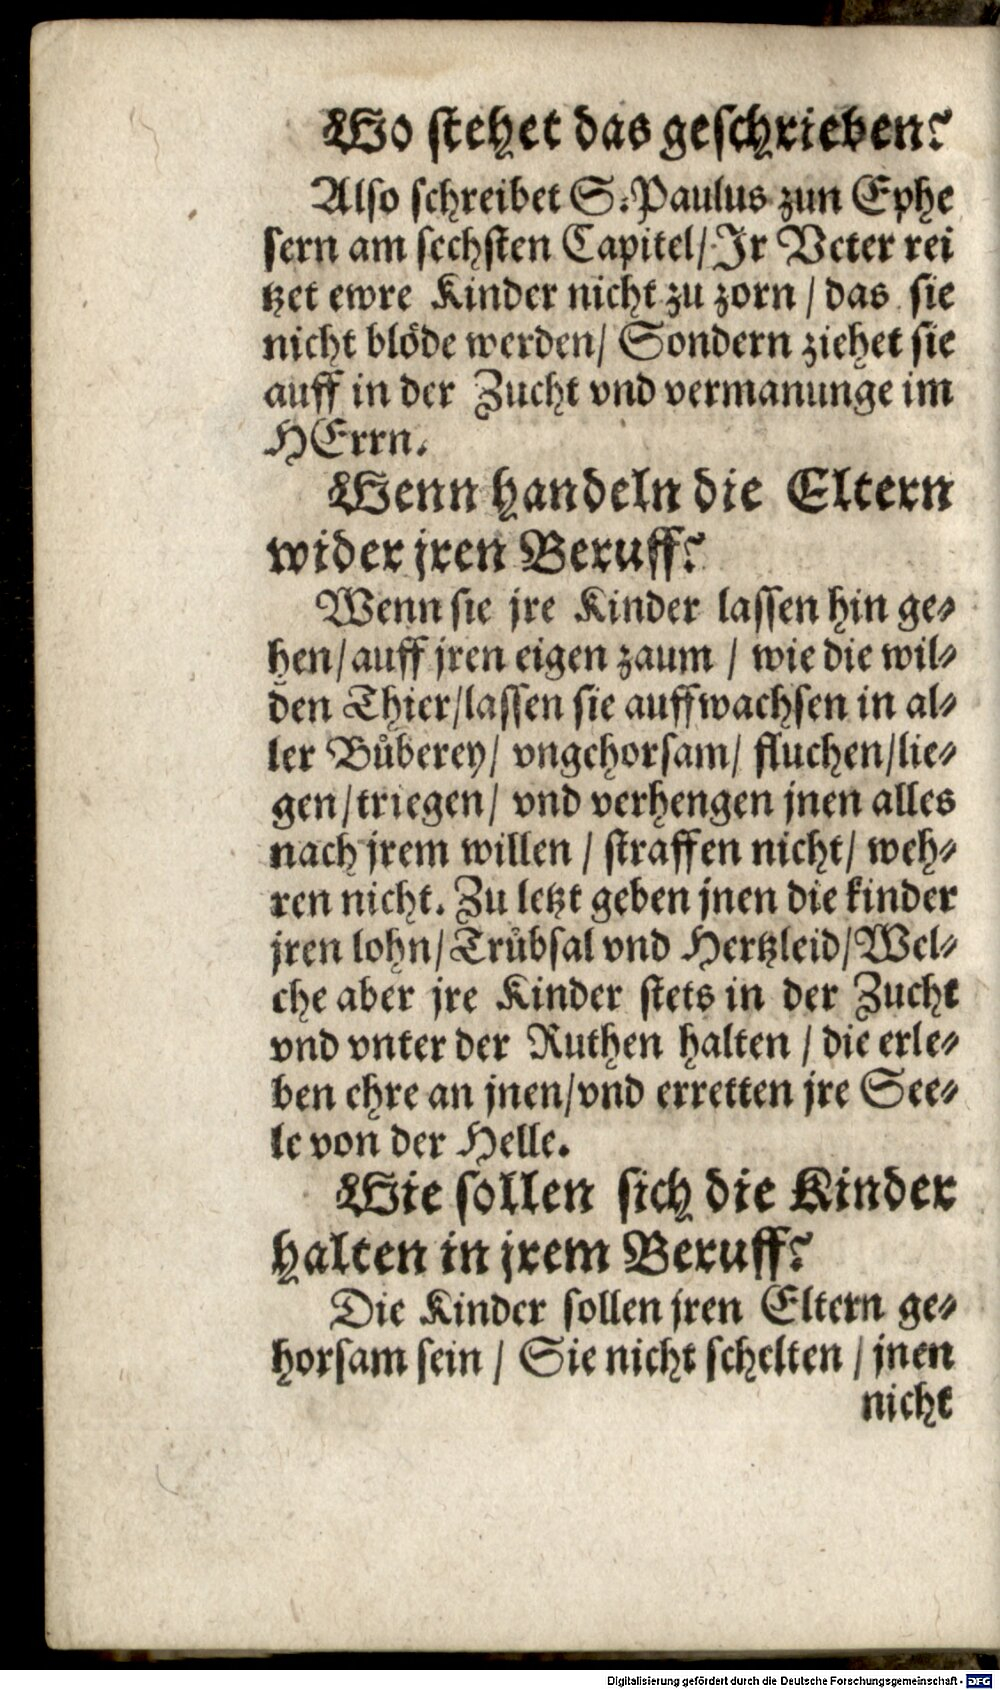 Wo stehet das geschrieben?
Also schreibet S. Paulus zun Ephe
sern am sechsten Capitel/ Jr Veter rei
tzet ewre Kinder nicht zu zorn / das sie
nicht blöde werden/ Sondern ziehet sie
auff in der Zucht vnd vermanunge im
HErrn.
Wenn handeln die Eltern
wider jren Beruff?
Wenn sie jre Kinder lassen hin ge-
hen/ auff jren eigen zaum / wie die wil-
den Thier/ lassen sie auffwachsen in al-
ler Bůberey/ vngehorsam/ fluchen/ lie-
gen/ triegen/ vnd verhengen jnen alles
nach jrem willen / straffen nicht/ weh-
ren nicht. Zu letzt geben jnen die kinder
jren lohn/ Trůbsal vnd Hertzleid/ Wel-
che aber jre Kinder stets in der Zucht
vnd vnter der Ruthen halten / die erle-
ben ehre an jnen/ vnd erretten jre See-
le von der Helle.
Wie sollen sich die Kinder
halten in jrem Beruff?
Die Kinder sollen jren Eltern ge-
horsam sein / Sie nicht schelten / jnen
nicht
Digitalisierung gefördert durch die Deutsche Forschungsgemeinschaft - DFG